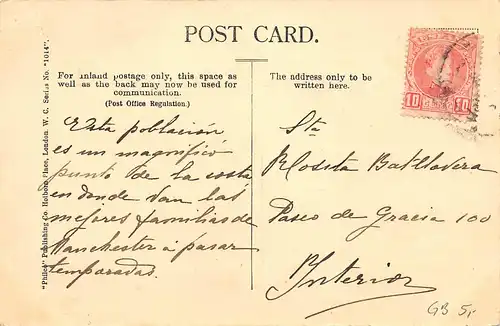 POST CARD.
For inland postage only, this space as
well as the back may now be used for
communication.
(Post Office Regulation.)
The address only to be
written here.
"Philco" Publishing Co. Holborn Place, London. W. C. Series No. "1014".
Esta población
es un magnífico
punto de la costa
en donde van las
mejores familias de
Manchester á pasar
temporadas.
Sta
Rosita Batllovera
Paseo de Gracia 100
Interior
10 10
GB 5,-